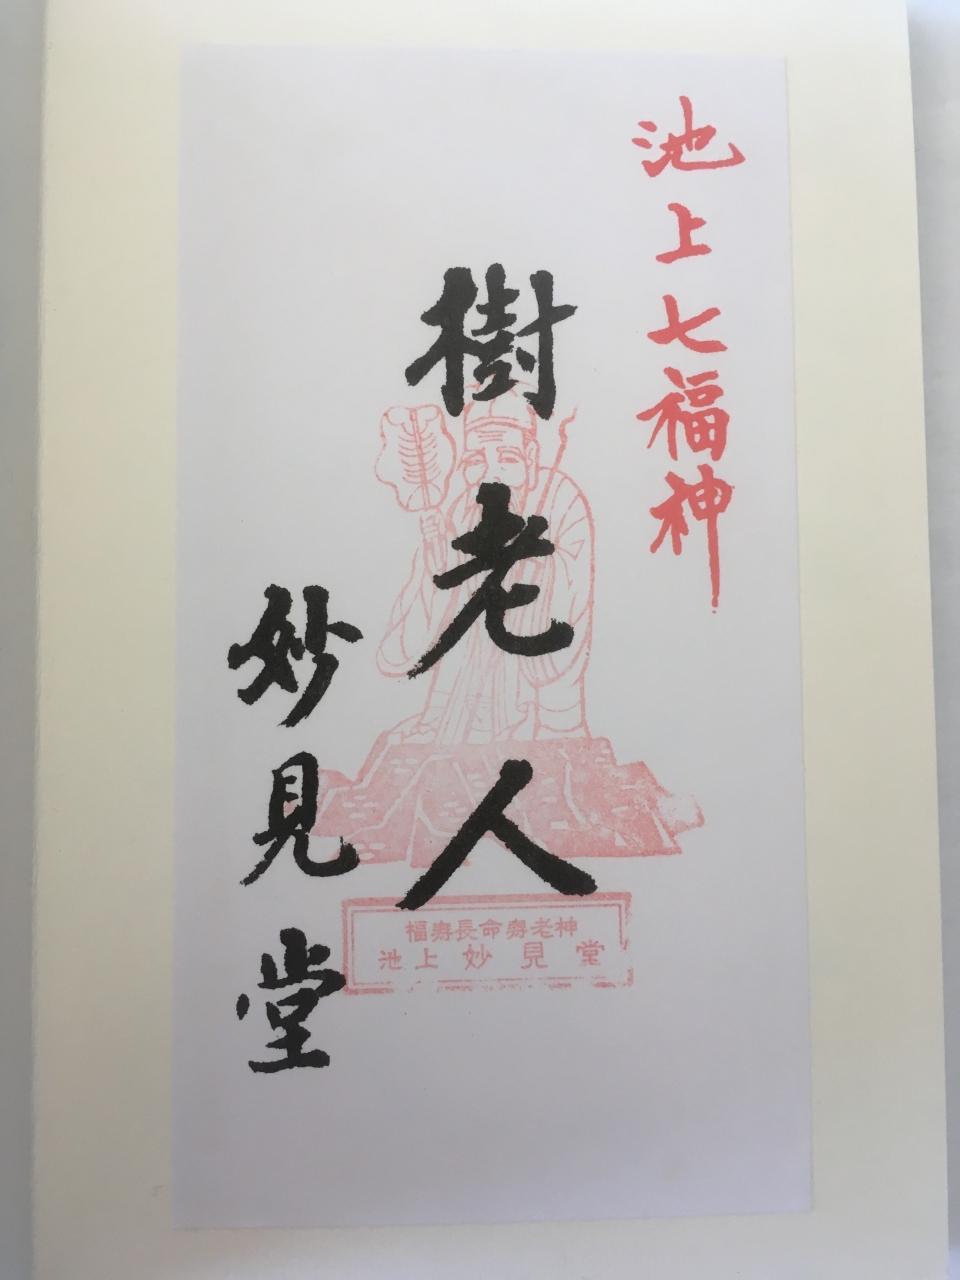 池上七福神
樹老人
妙見堂
福寿長命寿老神
池上妙見堂